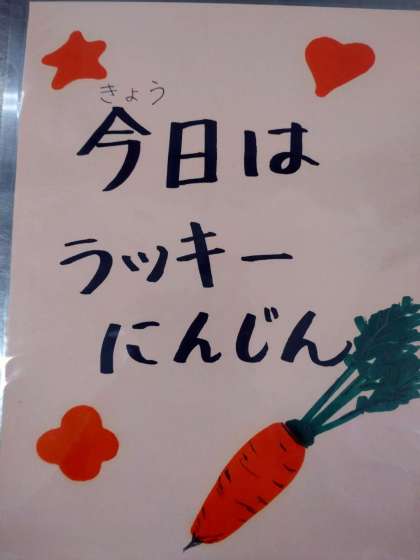 きょう
今日は
ラッキー
にんじん